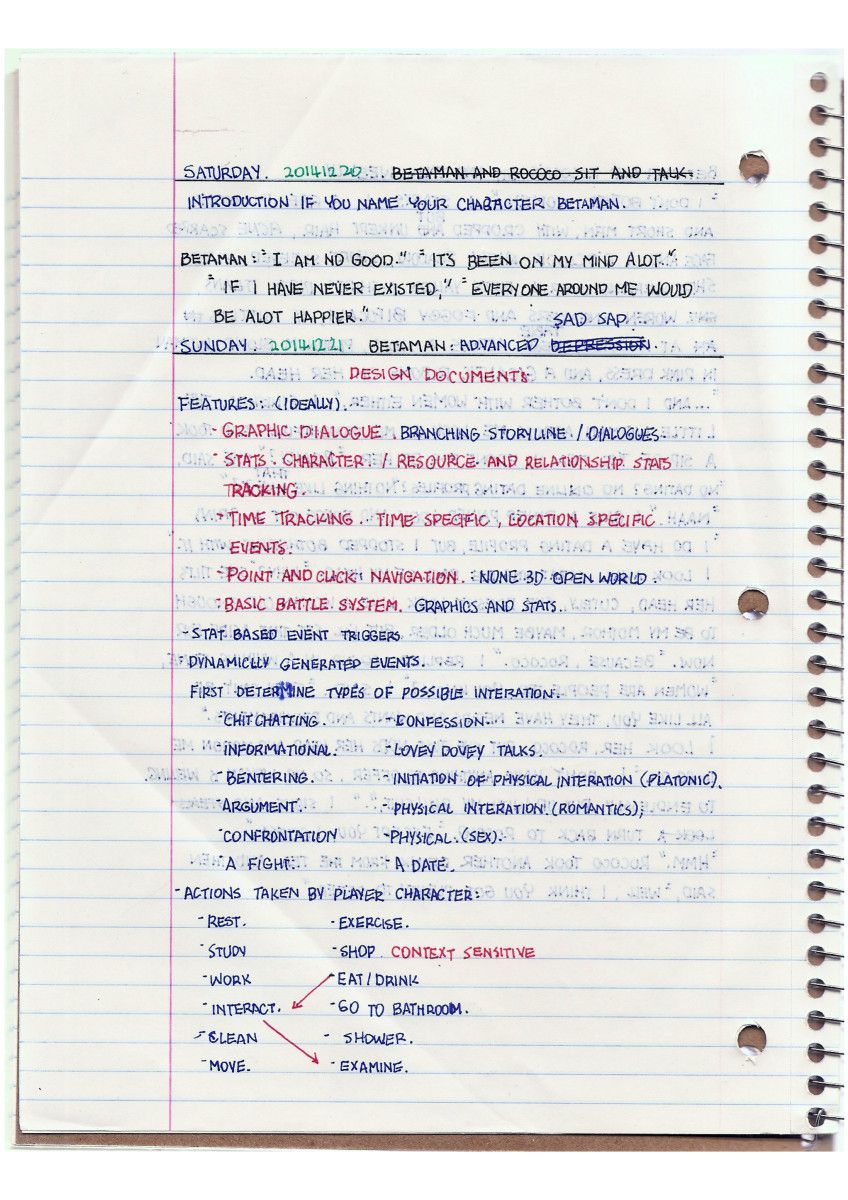 SATURDAY. 20141220. BETAMAN AND ROCOCO SIT AND TALK.
INTRODUCTION IF YOU NAME YOUR CHARACTER BETAMAN.
BETAMAN: "I AM NO GOOD." "IT'S BEEN ON MY MIND ALOT."
"IF I HAVE NEVER EXISTED," "EVERYONE AROUND ME WOULD
BE ALOT HAPPIER."
SAD SAP.
SUNDAY. 20141221. BETAMAN: ADVANCED DEPRESSION.
DESIGN DOCUMENTS
FEATURES (IDEALLY).
- GRAPHIC DIALOGUE. BRANCHING STORYLINE / DIALOGUES
- STATS. CHARACTER / RESOURCE AND RELATIONSHIP STATS
TRACKING.
- TIME TRACKING. TIME SPECIFIC, LOCATION SPECIFIC.
EVENTS.
- POINT AND CLICK NAVIGATION. NONE 3D OPEN WORLD
- BASIC BATTLE SYSTEM. GRAPHICS AND STATS.
- STAT BASED EVENT TRIGGERS
- DYNAMICLLY GENERATED EVENTS.
FIRST DETERMINE TYPES OF POSSIBLE INTERATION.
- CHITCHATTING. - CONFESSION
- INFORMATIONAL. - LOVEY DOVEY TALKS.
- BENTERING. - INITIATION OF PHYSICAL INTERATION (PLATONIC).
- ARGUMENT. - PHYSICAL INTERATION. (ROMANTICS);
- CONFRONTATION - PHYSICAL. (SEX).
- A FIGHT. - A DATE.
- ACTIONS TAKEN BY PLAYER CHARACTER:
- REST. - EXERCISE.
- STUDY - SHOP CONTEXT SENSITIVE
- WORK - EAT/DRINK
- INTERACT. - GO TO BATHROOM.
- CLEAN - SHOWER.
- MOVE. - EXAMINE.